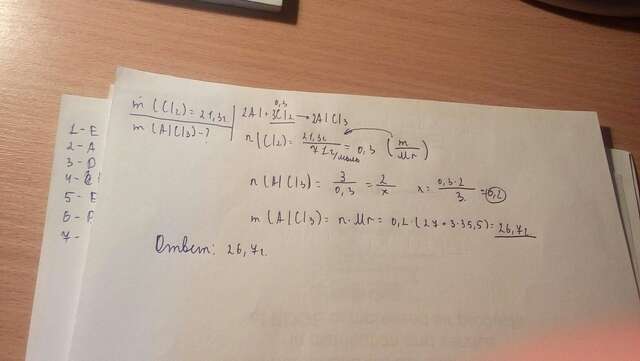 m (Cl₂) = 21,3г
m (AlCl₃) - ?
0,3
2Al + 3Cl₂ → 2AlCl₃
n(Cl₂) = 21,3г / 71г/моль = 0,3 (m / Mr)
n (AlCl₃) = 3 / 0,3 = 2 / x x = 0,3·2 / 3 = 0,2
m (AlCl₃) = n·Mr = 0,2·(27+3·35,5) = 26,7г
Ответ: 26,7г.
1 - E
2 - A
3 - D
5 - E
7 -